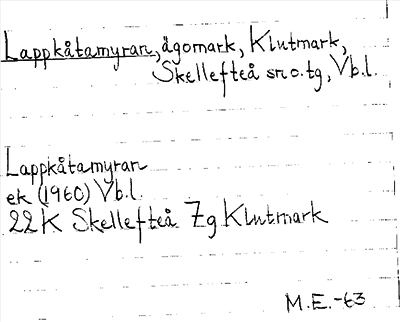 Lappkåtamyran, ägomark, Klutmark,
Skellefteå sn o. tg, Vb.l.
Lappkåtamyran
ek (1960) Vb.l.
22K Skellefteå 7g Klutmark
M.E.-63